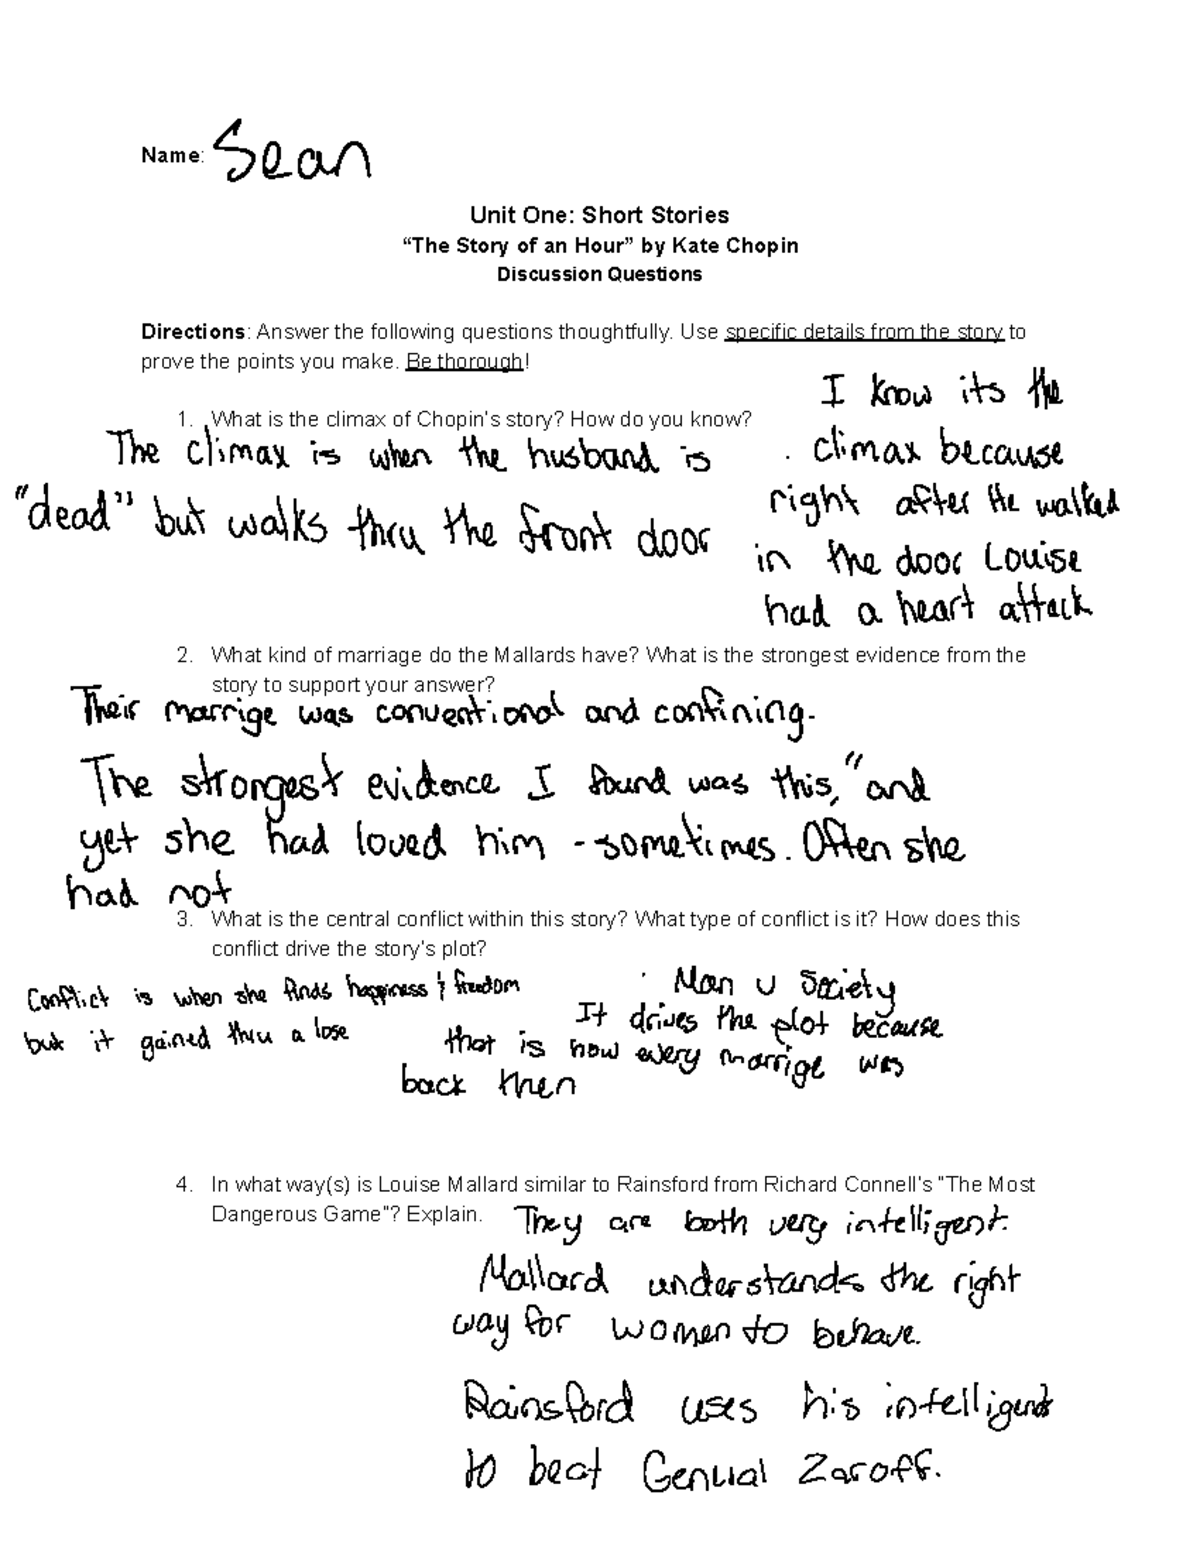 Name: Sean
Unit One: Short Stories
“The Story of an Hour” by Kate Chopin
Discussion Questions
Directions: Answer the following questions thoughtfully. Use specific details from the story to
prove the points you make. Be thorough!
1. What is the climax of Chopin's story? How do you know?
The climax is when the husband is
"dead" but walks thru the front door
I know its the
climax because
right after He walked
in the door Louise
had a heart attack
2. What kind of marriage do the Mallards have? What is the strongest evidence from the
story to support your answer?
Their marrige was conventional and confining.
The strongest evidence I found was this, "and
yet she had loved him - sometimes. Often she
had not
3. What is the central conflict within this story? What type of conflict is it? How does this
conflict drive the story's plot?
Conflict is when she finds happiness & freedom
but it gained thru a lose
· Man v Society
It drives the plot because
that is how every marrige was
back then
4. In what way(s) is Louise Mallard similar to Rainsford from Richard Connell's "The Most
Dangerous Game"? Explain.
They are both very intelligent.
Mallard understands the right
way for women to behave.
Rainsford uses his
to beat Genual Zaroff.